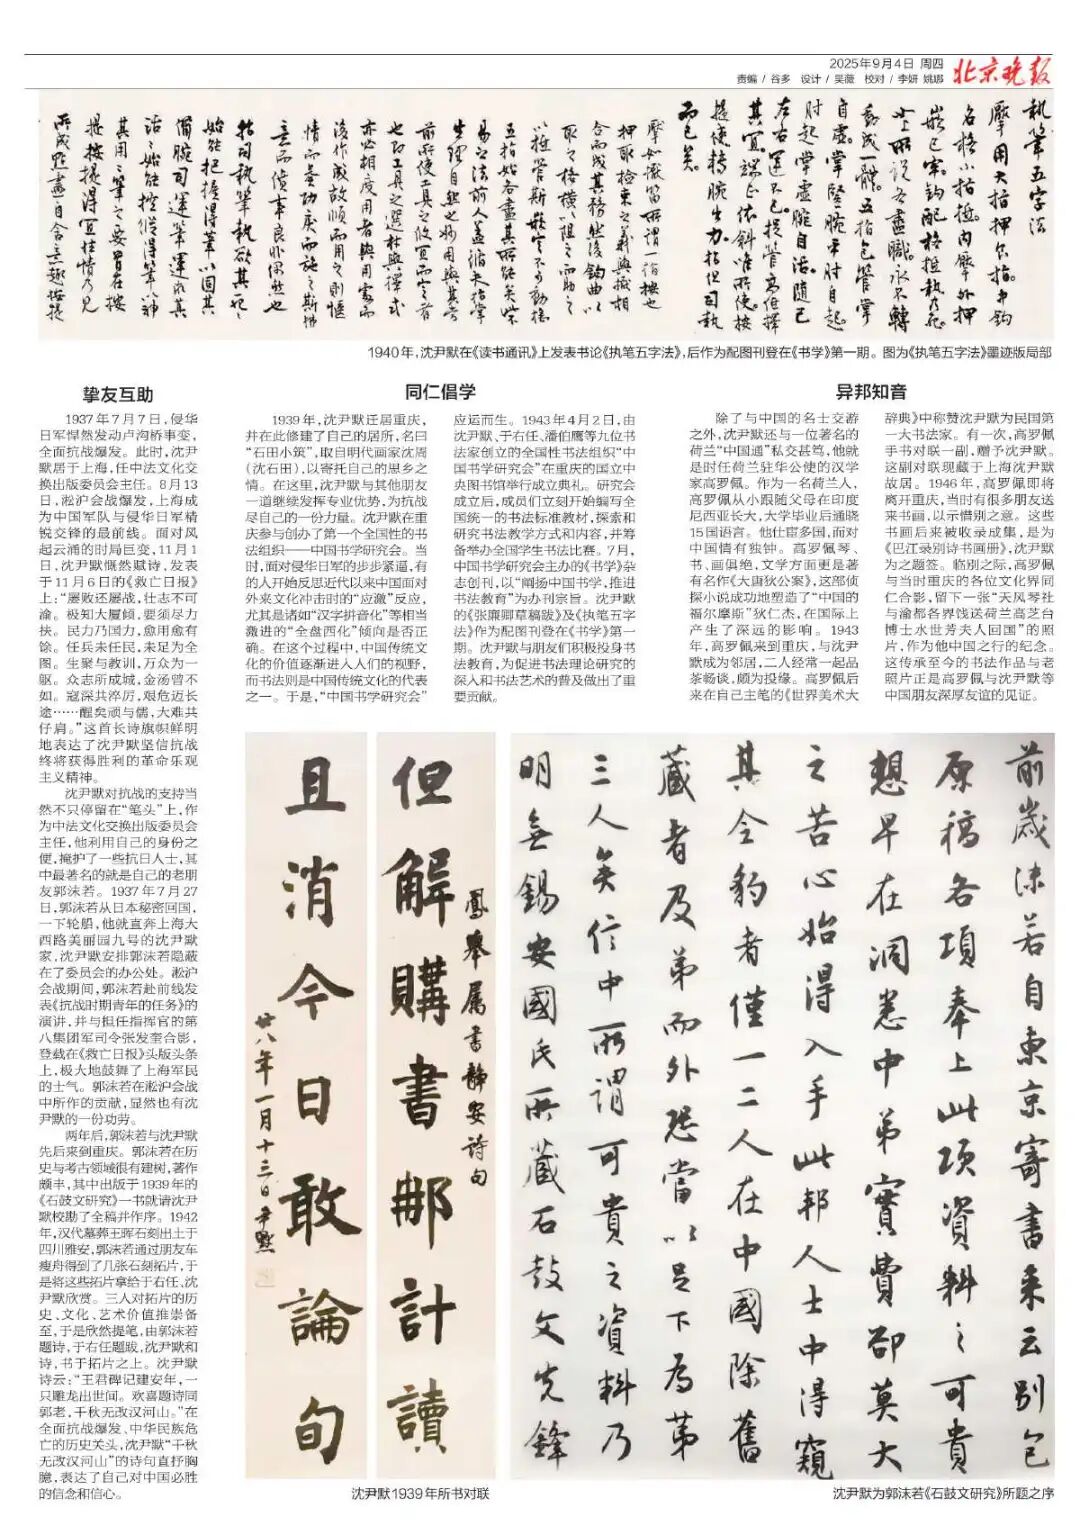 2025年9月4日 周四
责编 / 谷多 设计 / 吴薇 校对 / 李妍 姚娜
北京晚报
執筆五字法
1940年，沈尹默在《读书通讯》上发表书论《执笔五字法》，后作为配图刊登在《书学》第一期。图为《执笔五字法》墨迹版局部
挚友互助
1937年7月7日，侵华
日军悍然发动卢沟桥事变，
全面抗战爆发。此时，沈尹
默居于上海，任中法文化交
换出版委员会主任。8月13
日，淞沪会战爆发，上海成
为中国军队与侵华日军精
锐交锋的最前线。面对风
起云涌的时局巨变，11月1
日，沈尹默慨然赋诗，发表
于11月6日的《救亡日报》
上：“屡败还屡战，壮志不可
渝。极知大厦倾，要须尽力
扶。民力乃国力，愈用愈有
馀。任兵未任民，未足为全
图。生聚与教训，万众为一
躯。众志所成城，金汤曾不
如。寇深共淬厉，艰危迈长
途……醒矣顽与儒，大难共
仔肩。”这首长诗旗帜鲜明
地表达了沈尹默坚信抗战
终将获得胜利的革命乐观
主义精神。
沈尹默对抗战的支持当
然不只停留在“笔头”上，作
为中法文化交换出版委员会
主任，他利用自己的身份之
便，掩护了一些抗日人士，其
中最著名的就是自己的老朋
友郭沫若。1937年7月27
日，郭沫若从日本秘密回国，
一下轮船，他就直奔上海大
西路美丽园九号的沈尹默
家，沈尹默安排郭沫若隐蔽
在了委员会的办公处。淞沪
会战期间，郭沫若赴前线发
表《抗战时期青年的任务》的
演讲，并与担任指挥官的第
八集团军司令张发奎合影，
登载在《救亡日报》头版头条
上，极大地鼓舞了上海军民
的士气。郭沫若在淞沪会战
中所作的贡献，显然也有沈
尹默的一份功劳。
两年后，郭沫若与沈尹默
先后来到重庆。郭沫若在历
史与考古领域很有建树，著作
颇丰，其中出版于1939年的
《石鼓文研究》一书就请沈尹
默校勘了全稿并作序。1942
年，汉代墓葬王晖石刻出土于
四川雅安，郭沫若通过朋友车
瘦舟得到了几张石刻拓片，于
是将这些拓片拿给于右任、沈
尹默欣赏。三人对拓片的历
史、文化、艺术价值推崇备
至，于是欣然提笔，由郭沫若
题诗，于右任题跋，沈尹默和
诗，书于拓片之上。沈尹默
诗云：“王君碑记建安年，一
只雕龙出世间。欢喜题诗同
郭老，千秋无改汉河山。”在
全面抗战爆发、中华民族危
亡的历史关头，沈尹默“千秋
无改汉河山”的诗句直抒胸
臆，表达了自己对中国必胜
的信念和信心。
同仁倡学
1939年，沈尹默迁居重庆，
并在此修建了自己的居所，名曰
“石田小筑”，取自明代画家沈周
（沈石田），以寄托自己的思乡之
情。在这里，沈尹默与其他朋友
一道继续发挥专业优势，为抗战
尽自己的一份力量。沈尹默在重
庆参与创办了第一个全国性的书
法组织——中国书学研究会。当
时，面对侵华日军的步步紧逼，有
的人开始反思近代以来中国面对
外来文化冲击时的“应激”反应，
尤其是诸如“汉字拼音化”等相当
激进的“全盘西化”倾向是否正
确。在这个过程中，中国传统文
化的价值逐渐进入人们的视野，
而书法则是中国传统文化的代表
之一。于是，“中国书学研究会”
应运而生。1943年4月2日，由
沈尹默、于右任、潘伯鹰等九位书
法家创立的全国性书法组织“中
国书学研究会”在重庆的国立中
央图书馆举行成立典礼。研究会
成立后，成员们立刻开始编写全
国统一的书法标准教材，探索和
研究书法教学方式和内容，并筹
备举办全国学生书法比赛。7月，
中国书学研究会主办的《书学》杂
志创刊，以“阐扬中国书学，推进
书法教育”为办刊宗旨。沈尹默
的《张廉卿草稿跋》及《执笔五字
法》作为配图刊登在《书学》第一
期。沈尹默与朋友们积极投身书
法教育，为促进书法理论研究的
深入和书法艺术的普及做出了重
要贡献。
异邦知音
除了与中国的名士交游
之外，沈尹默还与一位著名的
荷兰“中国通”私交甚笃，他就
是时任荷兰驻华公使的汉学
家高罗佩。作为一名荷兰人，
高罗佩从小跟随父母在印度
尼西亚长大，大学毕业后通晓
15国语言。他仕宦多国，而对
中国情有独钟。高罗佩琴、
书、画俱绝，文学方面更是著
有名作《大唐狄公案》，这部侦
探小说成功地塑造了“中国的
福尔摩斯”狄仁杰，在国际上
产生了深远的影响。1943
年，高罗佩来到重庆，与沈尹
默成为邻居，二人经常一起品
茶畅谈，颇为投缘。高罗佩后
来在自己主笔的《世界美术大
辞典》中称赞沈尹默为民国第
一大书法家。有一次，高罗佩
手书对联一副，赠予沈尹默。
这副对联现藏于上海沈尹默
故居。1946年，高罗佩即将
离开重庆，当时有很多朋友送
来书画，以示惜别之意。这些
书画后来被收录成集，是为
《巴江录别诗书画册》，沈尹默
为之题签。临别之际，高罗佩
与当时重庆的各位文化界同
仁合影，留下一张“天风琴社
与渝都各界饯送荷兰高芝台
博士水世芳夫人回国”的照
片，作为他中国之行的纪念。
这传承至今的书法作品与老
照片正是高罗佩与沈尹默等
中国朋友深厚友谊的见证。
但解購書那計讀
鳳舉属書靜安詩句
且消今日敢論旬
廿八年一月十三日尹默
沈尹默1939年所书对联
前歲沫若自東京寄書来云别包
原稿各項奉上此項資料之可貴
想早在洞悉中弟實費卻莫大
之苦心始得入手此邦人士中得窺
其全豹者僅一二人在中國除舊
藏者及弟而外恐當以足下為第
三人矣信中所謂可貴之資料乃
明無錫安國氏所藏石鼓文先鋒
沈尹默为郭沫若《石鼓文研究》所题之序